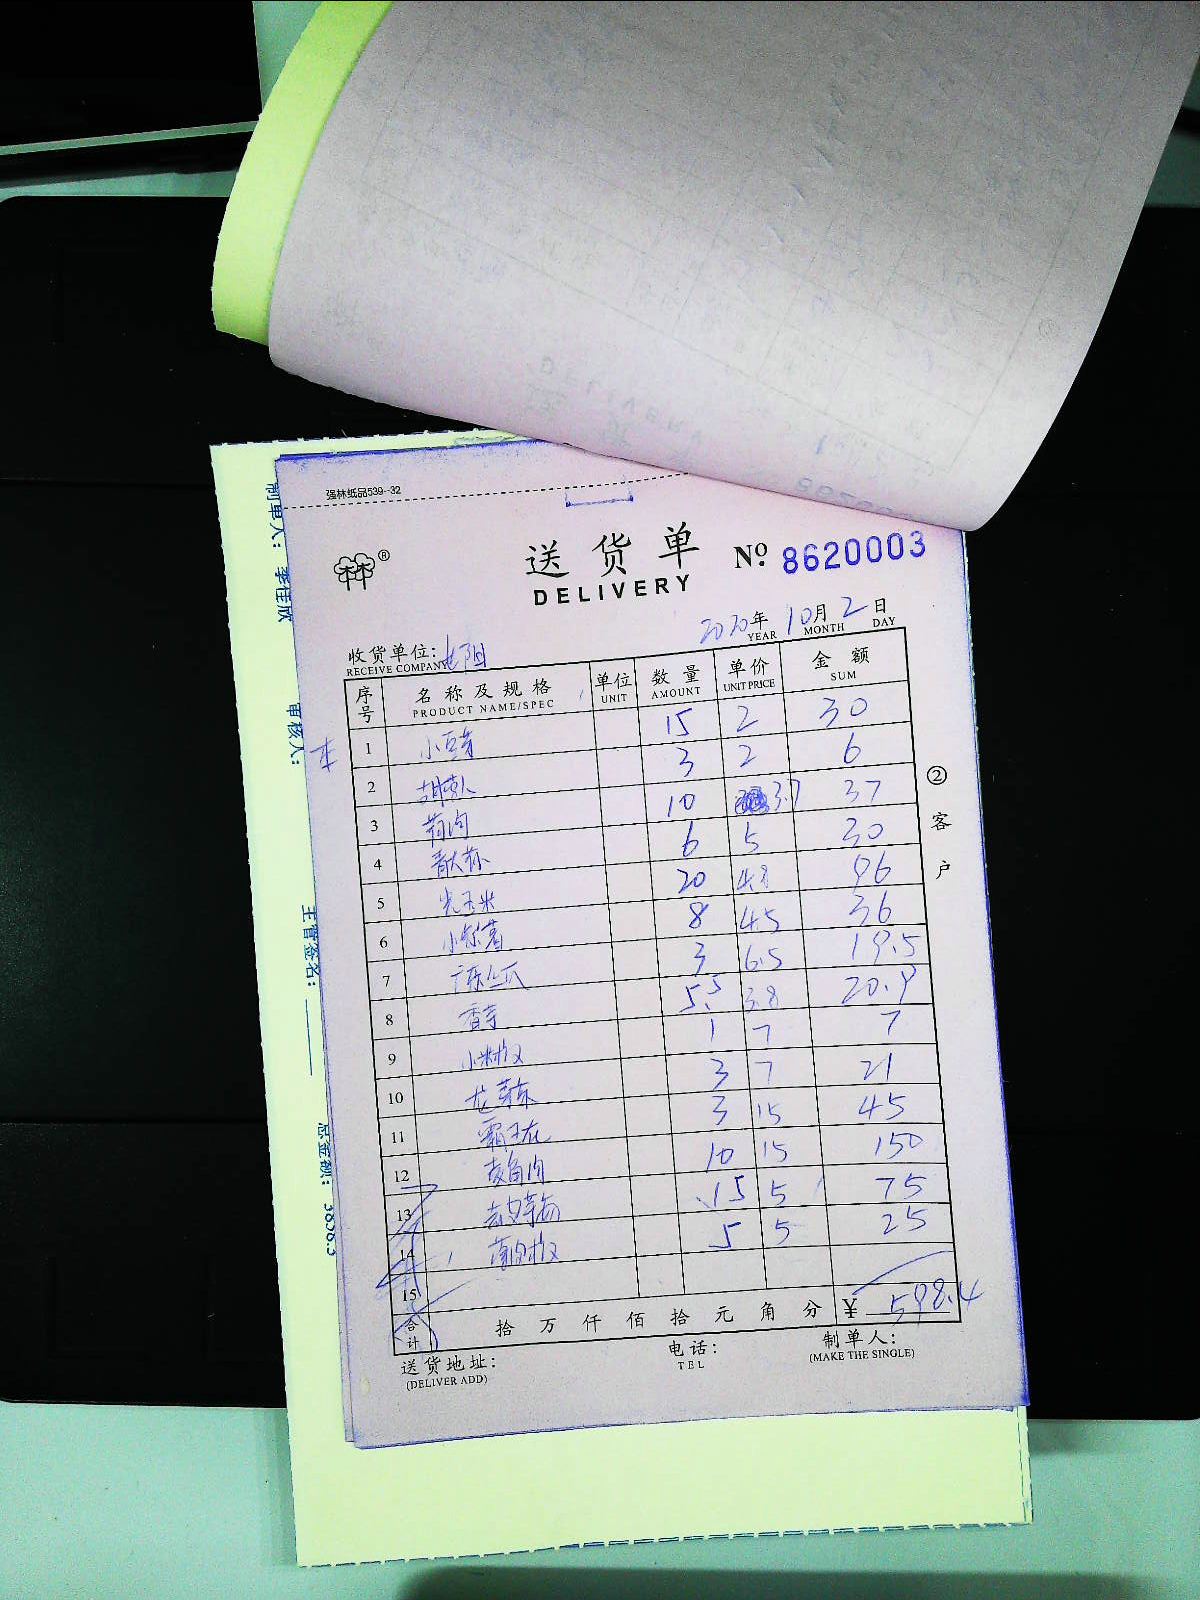 强林纸品539--32
送货单 No. 8620003
DELIVERY
2020年 10月 2日
YEAR MONTH DAY
收货单位:
RECEIVE COMPANY
序号 名称及规格 单位 数量 单价 金额
PRODUCT NAME/SPEC UNIT AMOUNT UNIT PRICE SUM
1 小豆芽 15 2 30
2 3 2 6
3 10 3.7 37
4 6 5 30
5 光玉米 20 4.8 96
6 8 4.5 36
7 3 6.5 19.5
8 香芋 5.5 3.8 20.9
9 小米椒 1 7 7
10 3 7 21
11 3 15 45
12 10 15 150
13 15 5 75
14 5 5 25
15
合计 拾 万 仟 佰 拾 元 角 分 ¥ 598.4
送货地址: 电话: 制单人:
(DELIVER ADD) TEL (MAKE THE SINGLE)
②客户
制单人: 李佳欣
审核人:
主管签名:
总金额: 3838.3